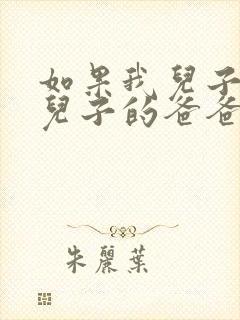 如果我兒子
兒子的爸爸
朱麗葉